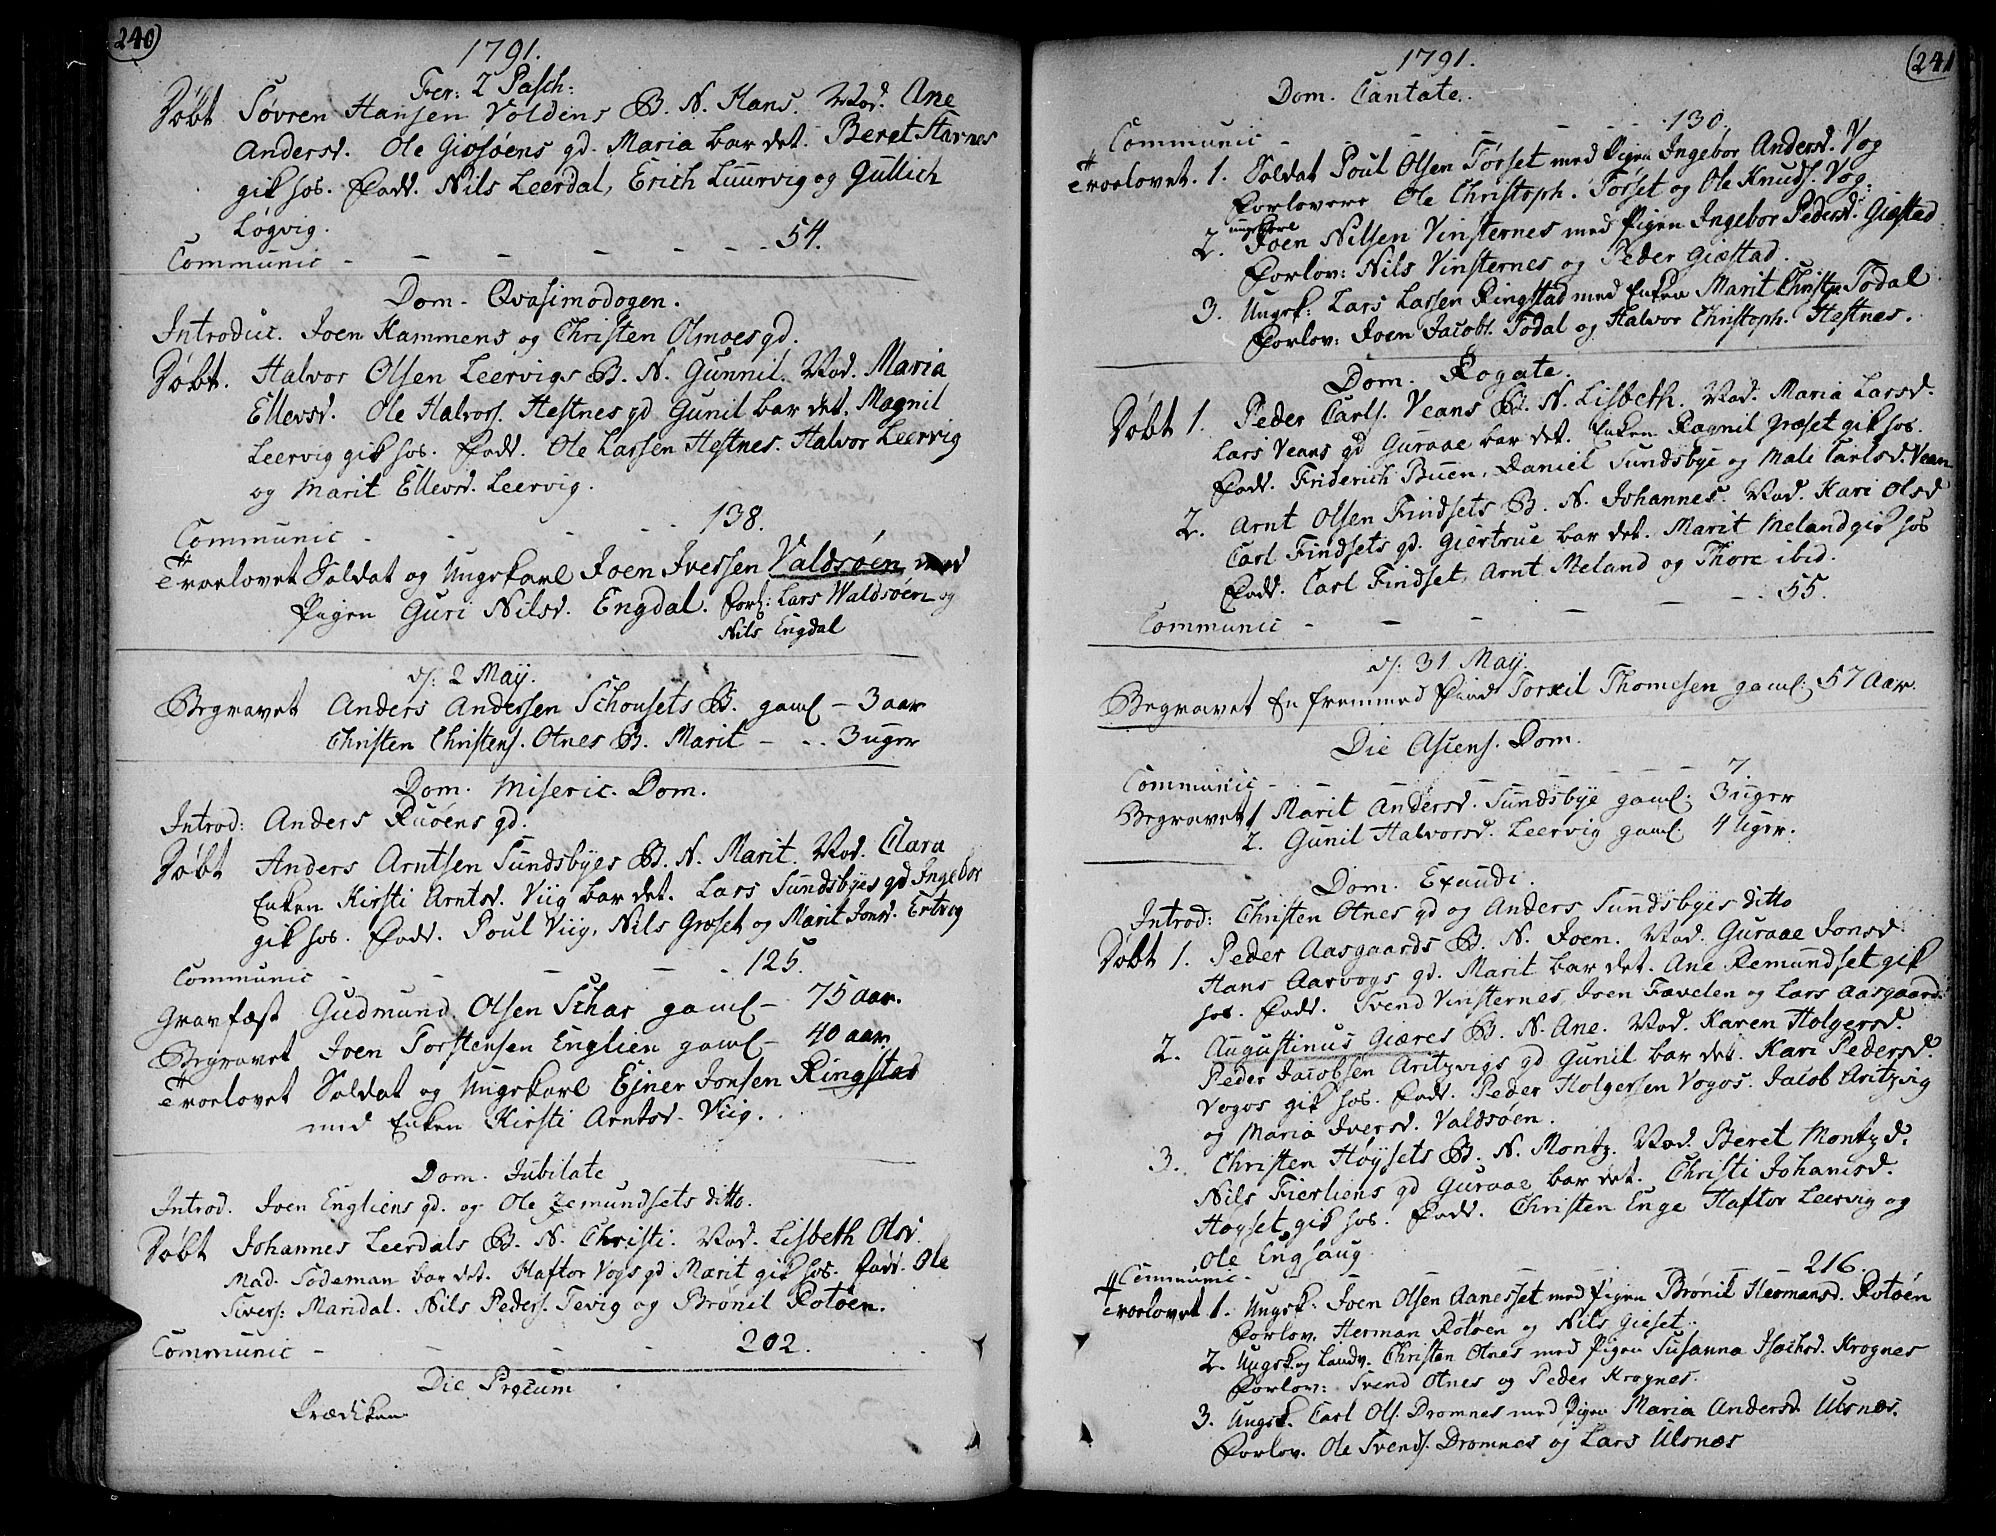 240
1791.
Fer: 2 Pasch:
Døbt Søvren Hansen Voldens B. N. Hans. Mod. Ane
Andersd. Ole Giøsøens gd. Maria bar det. Beret Stavnes
gik hos. Fadd. Nils Leerdal, Erich Luurvig og Gullich
Løgvig.
Communic - - - - - - 54.
Dom. Qvasimodogen.
Introduc. Joen Hammens og Christen Olmoes gd.
Døbt. Halvor Olsen Leervigs B. N. Gunnil. Mod. Maria
Ellevsd. Ole Halvors. Hestnes gd Gunil bar det. Magnil
Leervig gik hos. Fadd. Ole Larsen Hestnes. Halvor Leervig
og Marit Ellevsd. Leervig.
Communic - - - - 138.
Trorlovet Soldat og Ungekarl Joen Iversen Valdsøen, med
Pigen Guri Nilsd. Engdal. Forl: Lars Waldsøen og
Nils Engdal
d. 2 May.
Begravet Anders Andersen Schousets B. gaml - 3 aar
Christen Christens. Otnes B. Marit - - 3 uger
Dom. Miseric. Dom.
Introd: Anders Ruøens gd.
Døbt Anders Arntsen Sundsbyes B. N. Marit. Mod. Clara
Enken Kirsti Arntsd. Viig bar det. Lars Sundsbyes gd Ingebor
gik hos. Fadd. Poul Viig, Nils Græset og Marit Jonsd. Ertvig
Communic - - - - - 125.
Gravfæst Gudmund Olsen Schar gaml - 75 aar.
Begravet Joen Torstensen Englien gaml - 40 aar.
Trorlovet Soldat og Ungekarl Ejner Jonsen Ringstad
med Enken Kirsti Arntsd. Viig.
Dom. Jubilate
Introd. Joen Engliens gd. og Ole Zemundsets ditto.
Døbt Johannes Leerdals B. N. Christi. Mod. Lisbeth Olsd.
Mad. Sodeman bar det. Haftor Vogs gd Marit gik hos. Fadd. Ole
Sivers: Maridal. Nils Peders. Tevig og Brønil Rotøen.
Communic - - - - - 202.
Die Precum
Prædiken
1791.
241
Dom. Cantate.
Communic - - - - - 130.
Trorlovet. 1. Soldat Poul Olsen Torset med Pigen Ingebor Andersd. Vog
Forlovere Ole Christoph. Torset og Ole Knuds. Vog.
ungkarl
2. Joen Nilsen Vinsternes med Pigen Ingebor Pedersd. Giestad
Forlov: Nils Vinsternes og Peder Giestad.
3. Ungk: Lars Larsen Ringstad med Enken Marit Christp. Todal
Forlov: Joen Jacobs. Todal og Halvor Christoph. Hestnes.
Dom. Rogate.
Døbt 1. Peder Carls. Veans B. N. Lisbeth. Mod. Maria Larsd.
Lars Veans gd Guraae bar det. Enken Ragnil Græset gik hos.
Fadd. Friderich Buen, Daniel Sundsbye og Mali Carlsd. Vean
2. Arnt Olsen Findsets B. N. Johannes. Mod. Kari Olsd
Carl Findsets gd. Giertrue bar det. Marit Meland gik hos
Fadd. Carl Findset, Arnt Meland og Thore ibid.
Communic - - - - - 55.
d. 31 May.
Begravet En fremmed Find Torkil Thomesen gaml: 57 Aar.
Die Ascens. Dom.
Communic - - - - - 7.
Begravet 1 Marit Andersd. Sundsbye gaml: 3 uger
2. Gunil Halvorsd. Leervig gaml 4 Uger.
Dom. Exaudi.
Introd: Christen Otnes gd og Anders Sundsbyes ditto
Døbt 1. Peder Aasgaards B. N. Joen. Mod. Guraae Jonsd.
Hans Aarvogs gd. Marit bar det. Ane Remundset gik
hos. Fadd. Svend Vinsternes, Joen Favelen og Lars Aasgaard.
2. Augustinus Giæres B. N. Ane. Mod. Karen Holgersd.
Peder Jacobsen Aritzvigs gd Gunil bar det. Kari Pedersd.
Vogos gik hos. Fadd. Peder Holgersen Vogos. Jacob Aritzvig
og Maria Iversd. Valdsøen.
3. Christen Høysets B. N. Montz. Mod. Beret Montzd.
Nils Fierliens gd Guraae bar det. Christi Johansd.
Høyset gik hos. Fadd. Christen Enge Haftor Leervig og
Ole Enghaug
Communic. - - - - - 216.
Trorlovet 1. Ungk. Joen Olsen Aanesset med Pigen Brønil Hermansd. Rotøen
Forlov. Herman Rotøen og Nils Gieset.
2. Ungk. og Landv. Christen Otnes med Pigen Susanna Isachsd. Krognes
Forlov: Svend Otnes og Peder Krognes.
3. Ungk. Carl Ols. Dromnes med Pigen Maria Andersd. Ulsnæs.
Forlov. Ole Svends. Dromnes og Lars Ulsnæs